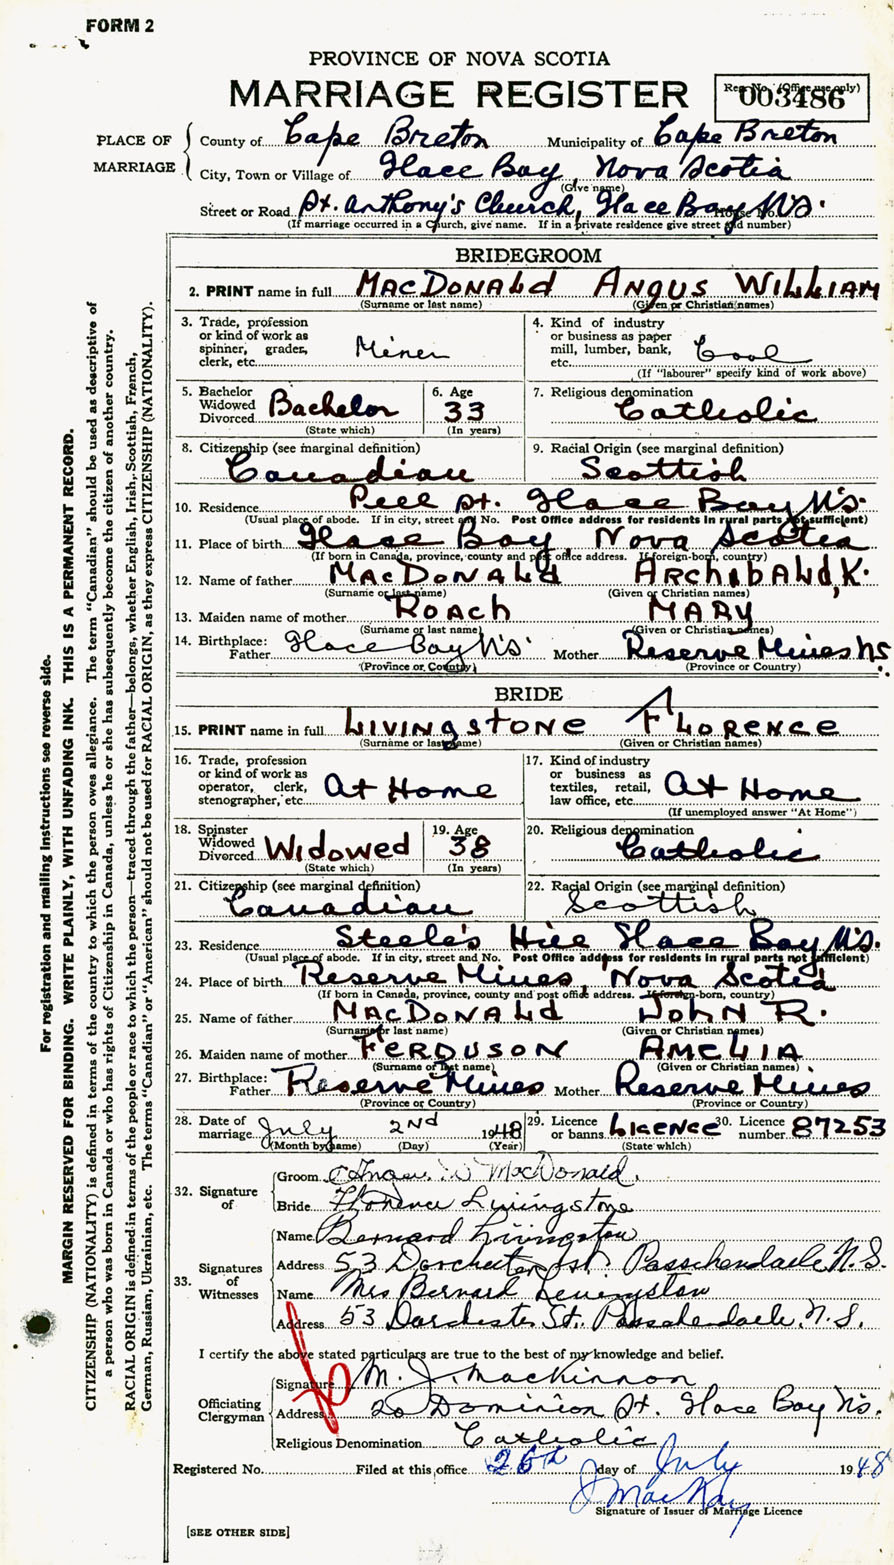 FORM 2
PROVINCE OF NOVA SCOTIA
MARRIAGE REGISTER
Reg. No. (Office use only)
003486
PLACE OF MARRIAGE
County of Cape Breton Municipality of Cape Breton
City, Town or Village of Glace Bay, Nova Scotia
(Give name)
Street or Road St. Anthony's Church, Glace Bay N.S. House No.
(If marriage occurred in a Church, give name. If in a private residence give street and number)
BRIDEGROOM
2. PRINT name in full MacDONALD ANGUS WILLIAM
(Surname or last name) (Given or Christian names)
3. Trade, profession or kind of work as spinner, grader, clerk, etc. Miner
4. Kind of industry or business as paper mill, lumber, bank, etc. Coal
(If "labourer" specify kind of work above)
5. Bachelor Widowed Divorced Bachelor
(State which)
6. Age 33
(In years)
7. Religious denomination Catholic
8. Citizenship (see marginal definition) Canadian
9. Racial Origin (see marginal definition) Scottish
10. Residence Peel St. Glace Bay N.S.
(Usual place of abode. If in city, street and No. Post Office address for residents in rural parts not sufficient)
11. Place of birth Glace Bay, Nova Scotia
(If born in Canada, province, county and post office address. If foreign-born, country)
12. Name of father MacDONALD ARCHIBALD, K.
(Surname or last name) (Given or Christian names)
13. Maiden name of mother ROACH MARY
(Surname or last name) (Given or Christian names)
14. Birthplace: Father Glace Bay N.S. Mother Reserve Mines N.S.
(Province or Country) (Province or Country)
BRIDE
15. PRINT name in full LIVINGSTONE FLORENCE
(Surname or last name) (Given or Christian names)
16. Trade, profession or kind of work as operator, clerk, stenographer, etc. At Home
17. Kind of industry or business as textiles, retail, law office, etc. At Home
(If unemployed answer "At Home")
18. Spinster Widowed Divorced Widowed
(State which)
19. Age 38
(In years)
20. Religious denomination Catholic
21. Citizenship (see marginal definition) Canadian
22. Racial Origin (see marginal definition) Scottish
23. Residence Steele's Hill Glace Bay N.S.
(Usual place of abode. If in city, street and No. Post Office address for residents in rural parts not sufficient)
24. Place of birth Reserve Mines, Nova Scotia
(If born in Canada, province, county and post office address. If foreign-born, country)
25. Name of father MacDONALD JOHN R.
(Surname or last name) (Given or Christian names)
26. Maiden name of mother FERGUSON AMELIA
(Surname or last name) (Given or Christian names)
27. Birthplace: Father Reserve Mines Mother Reserve Mines
(Province or Country) (Province or Country)
28. Date of marriage July 2nd 1948
(Month by name) (Day) (Year)
29. Licence or banns Licence
(State which)
30. Licence number 87253
32. Signature of
Groom Angus W MacDonald.
Bride Florence Livingstone
33. Signatures of Witnesses
Name Bernard Livingston
Address 53 Dorchester St. Passchendaele N.S.
Name Mrs Bernard Livingston
Address 53 Dorchester St. Passchendaele, N.S.
I certify the above stated particulars are true to the best of my knowledge and belief.
Officiating Clergyman
Signature M. J. MacKinnon
Address 20 Dominion St. Glace Bay N.S.
Religious Denomination Catholic
Registered No. Filed at this office 26th day of July 1948
J MacKay
Signature of Issuer of Marriage Licence
[SEE OTHER SIDE]
For registration and mailing instructions see reverse side.
MARGIN RESERVED FOR BINDING. WRITE PLAINLY, WITH UNFADING INK. THIS IS A PERMANENT RECORD.
CITIZENSHIP (NATIONALITY) is defined in terms of the country to which the person owes allegiance. The term "Canadian" should be used as descriptive of
a person who was born in Canada or who has rights of Citizenship in Canada, unless he or she has subsequently become the citizen of another country.
RACIAL ORIGIN is defined in terms of the people or race to which the person—traced through the father—belongs, whether English, Irish, Scottish, French,
German, Russian, Ukrainian, etc. The terms "Canadian" or "American" should not be used for RACIAL ORIGIN, as they express CITIZENSHIP (NATIONALITY).